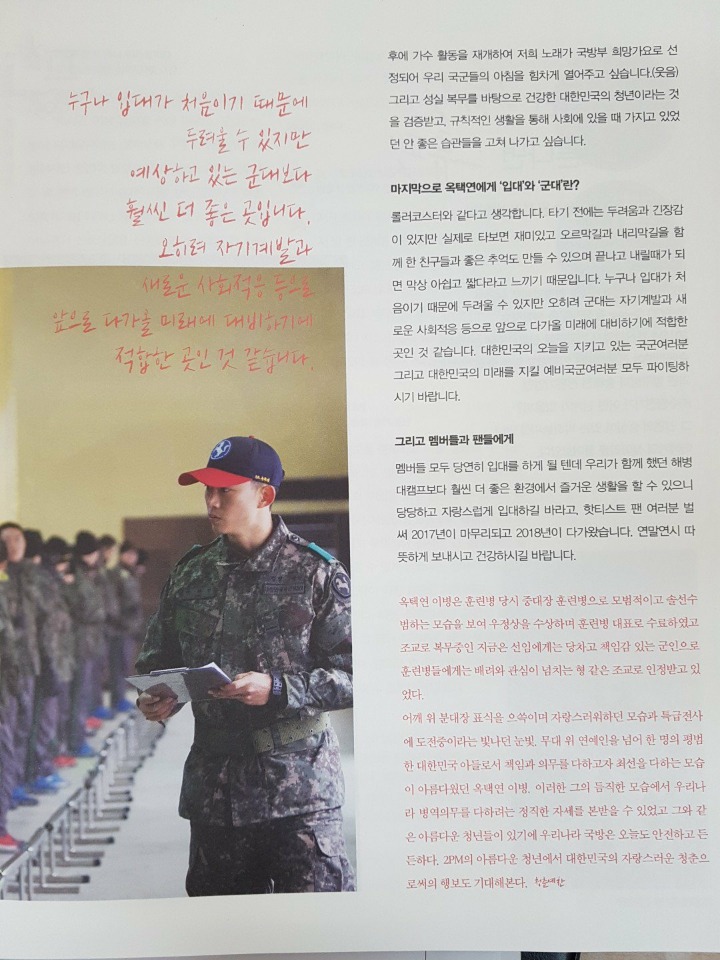 누구나 입대가 처음이기 때문에
두려울 수 있지만
예상하고 있는 군대보다
훨씬 더 좋은 곳입니다.
오히려 자기계발과
새로운 사회적응 등으로
앞으로 다가올 미래에 대비하기에
적합한 곳인 것 같습니다.
후에 가수 활동을 재개하여 저희 노래가 국방부 희망가요로 선
정되어 우리 국군들의 아침을 힘차게 열어주고 싶습니다.(웃음)
그리고 성실 복무를 바탕으로 건강한 대한민국의 청년이라는 것
을 검증받고, 규칙적인 생활을 통해 사회에 있을 때 가지고 있었
던 안 좋은 습관들을 고쳐 나가고 싶습니다.
마지막으로 옥택연에게 ‘입대’와 ‘군대’란?
롤러코스터와 같다고 생각합니다. 타기 전에는 두려움과 긴장감
이 있지만 실제로 타보면 재미있고 오르막길과 내리막길을 함
께 한 친구들과 좋은 추억도 만들 수 있으며 끝나고 내릴때가 되
면 막상 아쉽고 짧다라고 느끼기 때문입니다. 누구나 입대가 처
음이기 때문에 두려울 수 있지만 오히려 군대는 자기계발과 새
로운 사회적응 등으로 앞으로 다가올 미래에 대비하기에 적합한
곳인 것 같습니다. 대한민국의 오늘을 지키고 있는 국군여러분
그리고 대한민국의 미래를 지킬 예비국군여러분 모두 파이팅하
시기 바랍니다.
그리고 멤버들과 팬들에게
멤버들 모두 당연히 입대를 하게 될 텐데 우리가 함께 했던 해병
대캠프보다 훨씬 더 좋은 환경에서 즐거운 생활을 할 수 있으니
당당하고 자랑스럽게 입대하길 바라고, 핫티스트 팬 여러분 벌
써 2017년이 마무리되고 2018년이 다가왔습니다. 연말연시 따
뜻하게 보내시고 건강하시길 바랍니다.
옥택연 이병은 훈련병 당시 중대장 훈련병으로 모범적이고 솔선수
범하는 모습을 보여 우정상을 수상하며 훈련병 대표로 수료하였고
조교로 복무중인 지금은 선임에게는 당차고 책임감 있는 군인으로
훈련병들에게는 배려와 관심이 넘치는 형 같은 조교로 인정받고 있
었다.
어깨 위 분대장 표식을 으쓱이며 자랑스러워하던 모습과 특급전사
에 도전중이라는 빛나던 눈빛, 무대 위 연예인을 넘어 한 명의 평범
한 대한민국 아들로서 책임과 의무를 다하고자 최선을 다하는 모습
이 아름다웠던 옥택연 이병. 이러한 그의 듬직한 모습에서 우리나
라 병역의무를 다하려는 정직한 자세를 본받을 수 있었고 그와 같
은 아름다운 청년들이 있기에 우리나라 국방은 오늘도 안전하고 든
든하다. 2PM의 아름다운 청년에서 대한민국의 자랑스러운 청춘으
로써의 행보도 기대해본다. 청춘예찬